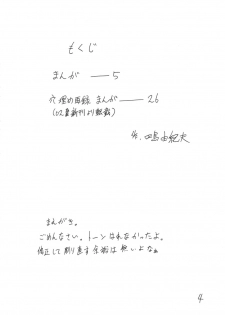 もくじ
まんが ―― 5
穴埋め再録 まんが ―― 26
(C72 最新刊より転載)
作. 四島由紀夫
まえがき。
ごめんなさい。トーンはれなかったよ。
修正して刷り直す余裕は無いよなぁ
4